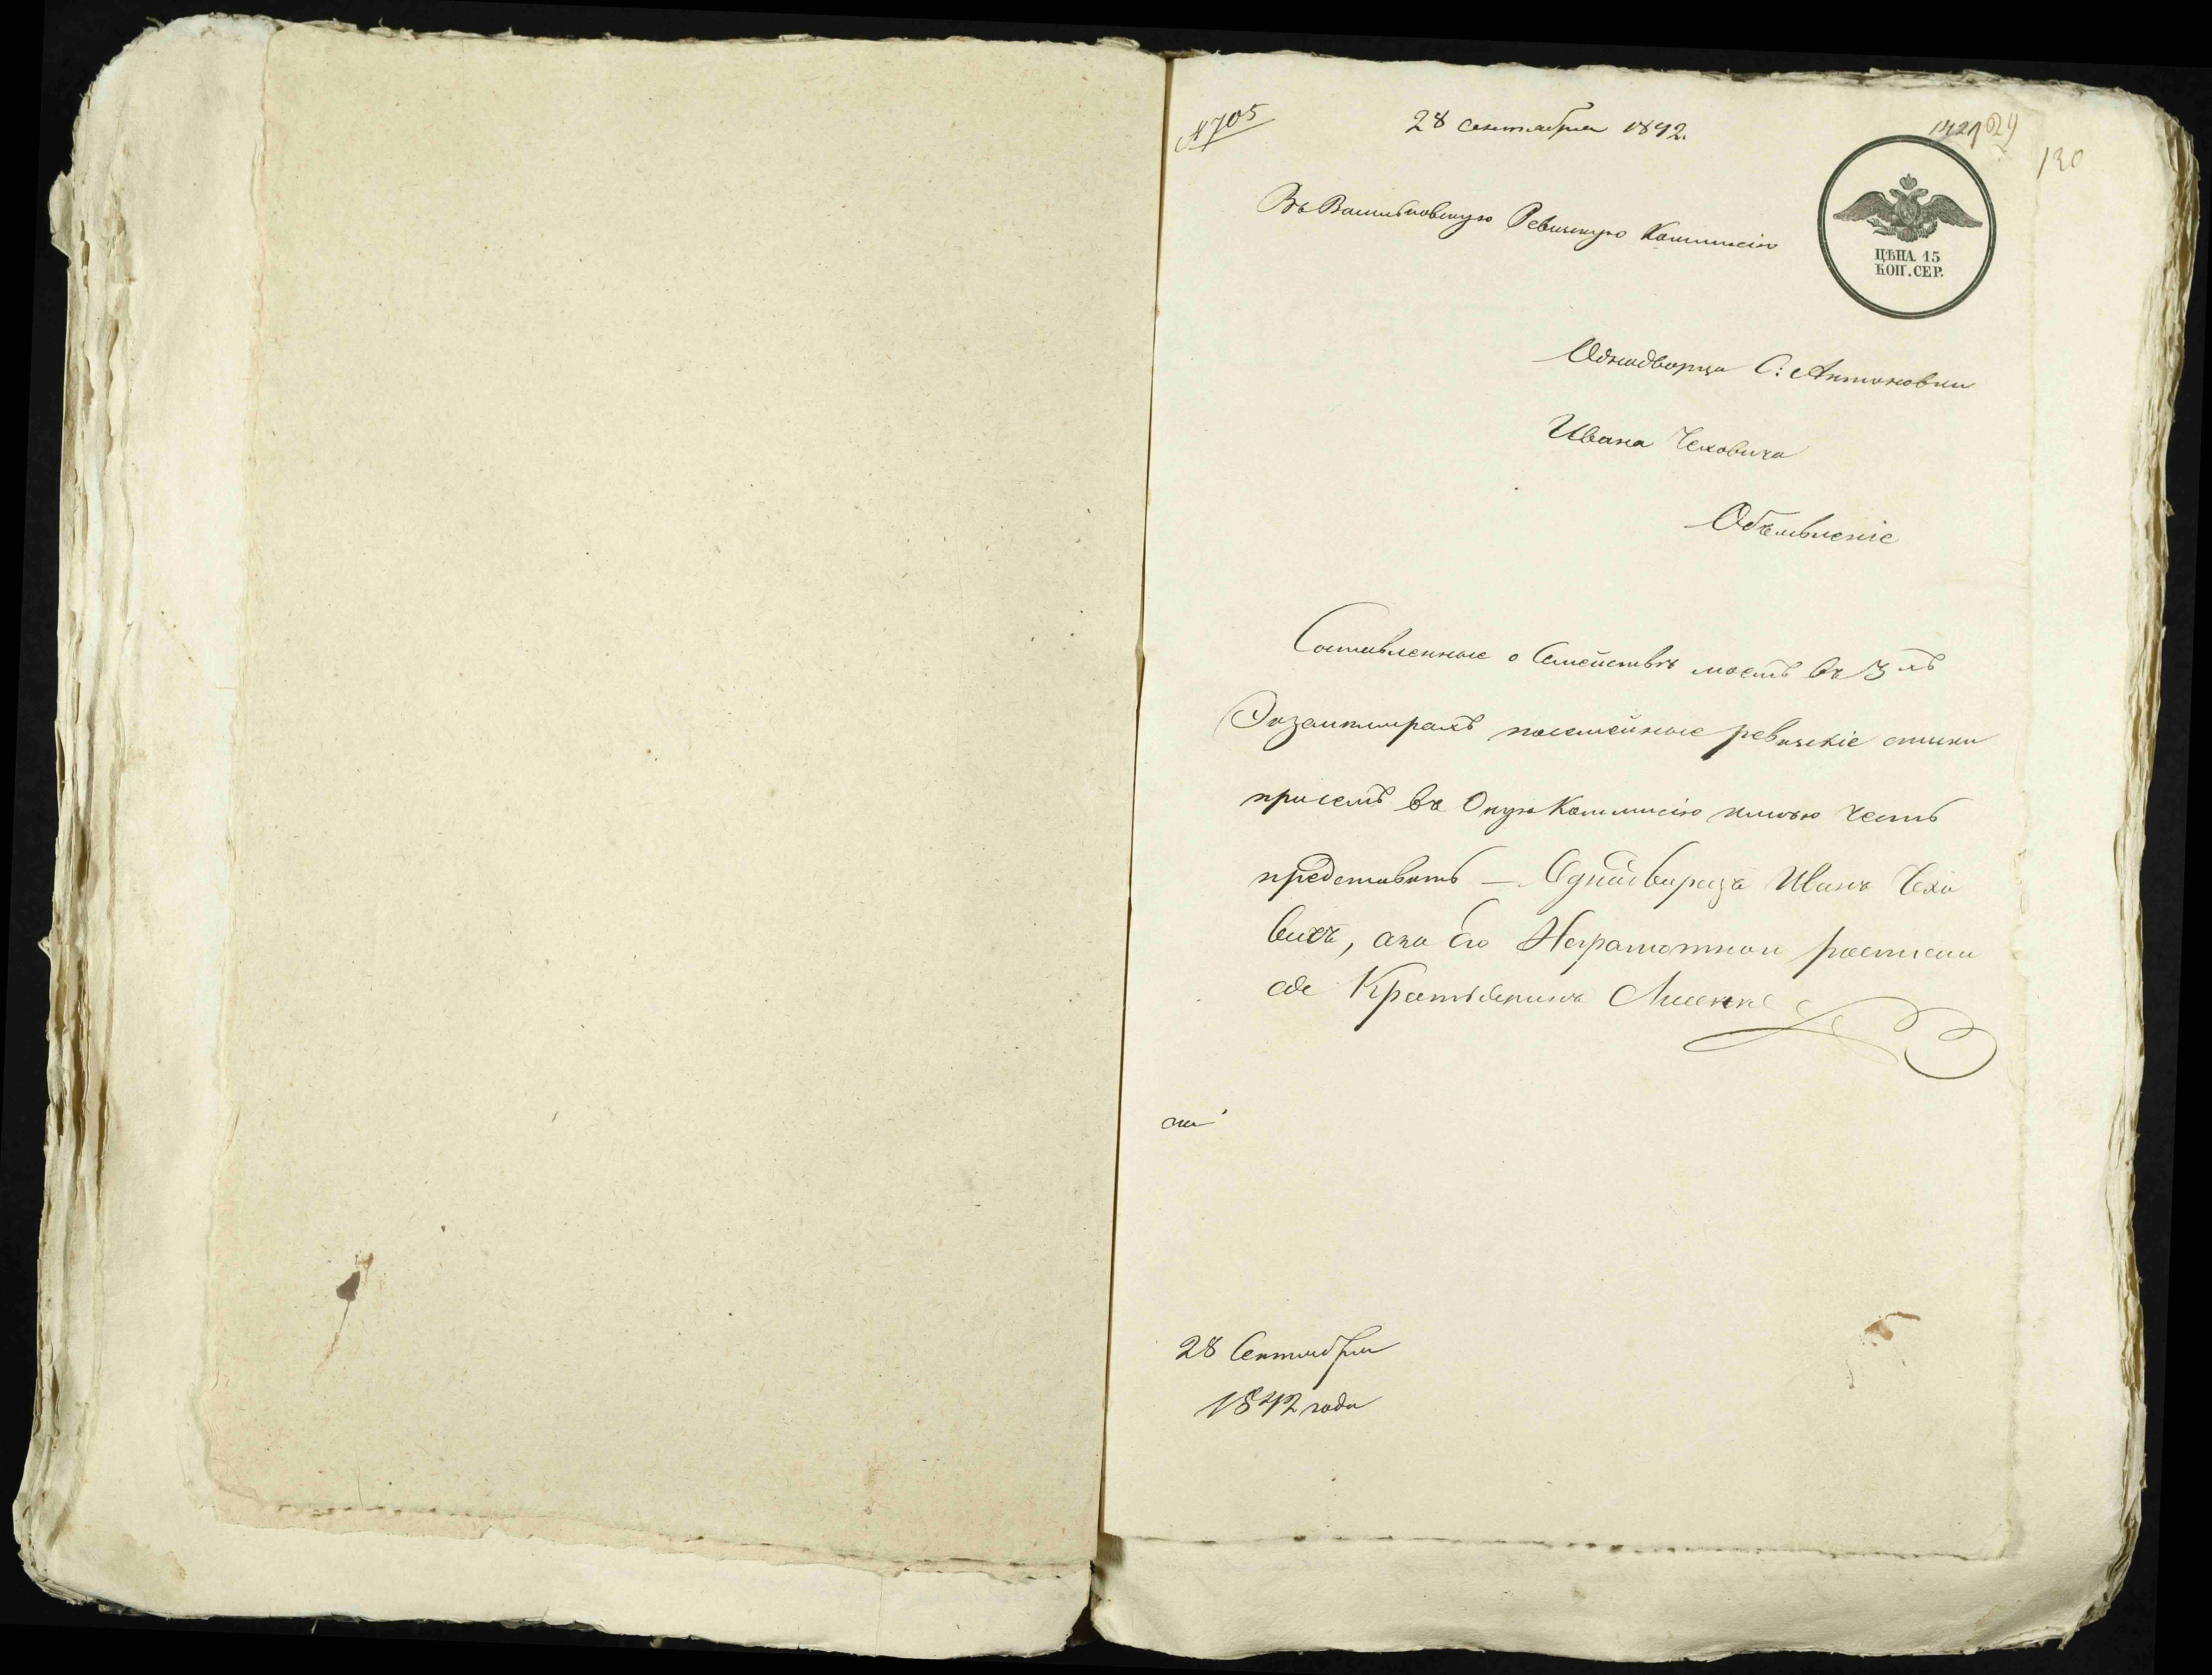 № 705
28 сентября 1842.
130
Въ Васильковскую Ревизскую Коммисію
ЦѢНА. 15
КОП. СЕР.
Однодворца С: Антоновки
Ивана Чеховича
Объявленіе
Составленные о Семействѣ моемъ въ 3хъ
Экземплярахъ посемейные ревизскіе
присемъ въ Оную Коммисію имѣю честь
представить — Однодворецъ Иванъ Чехо
вичъ, а за его Неграмотнаго росписал
28 Сентября
1842 года